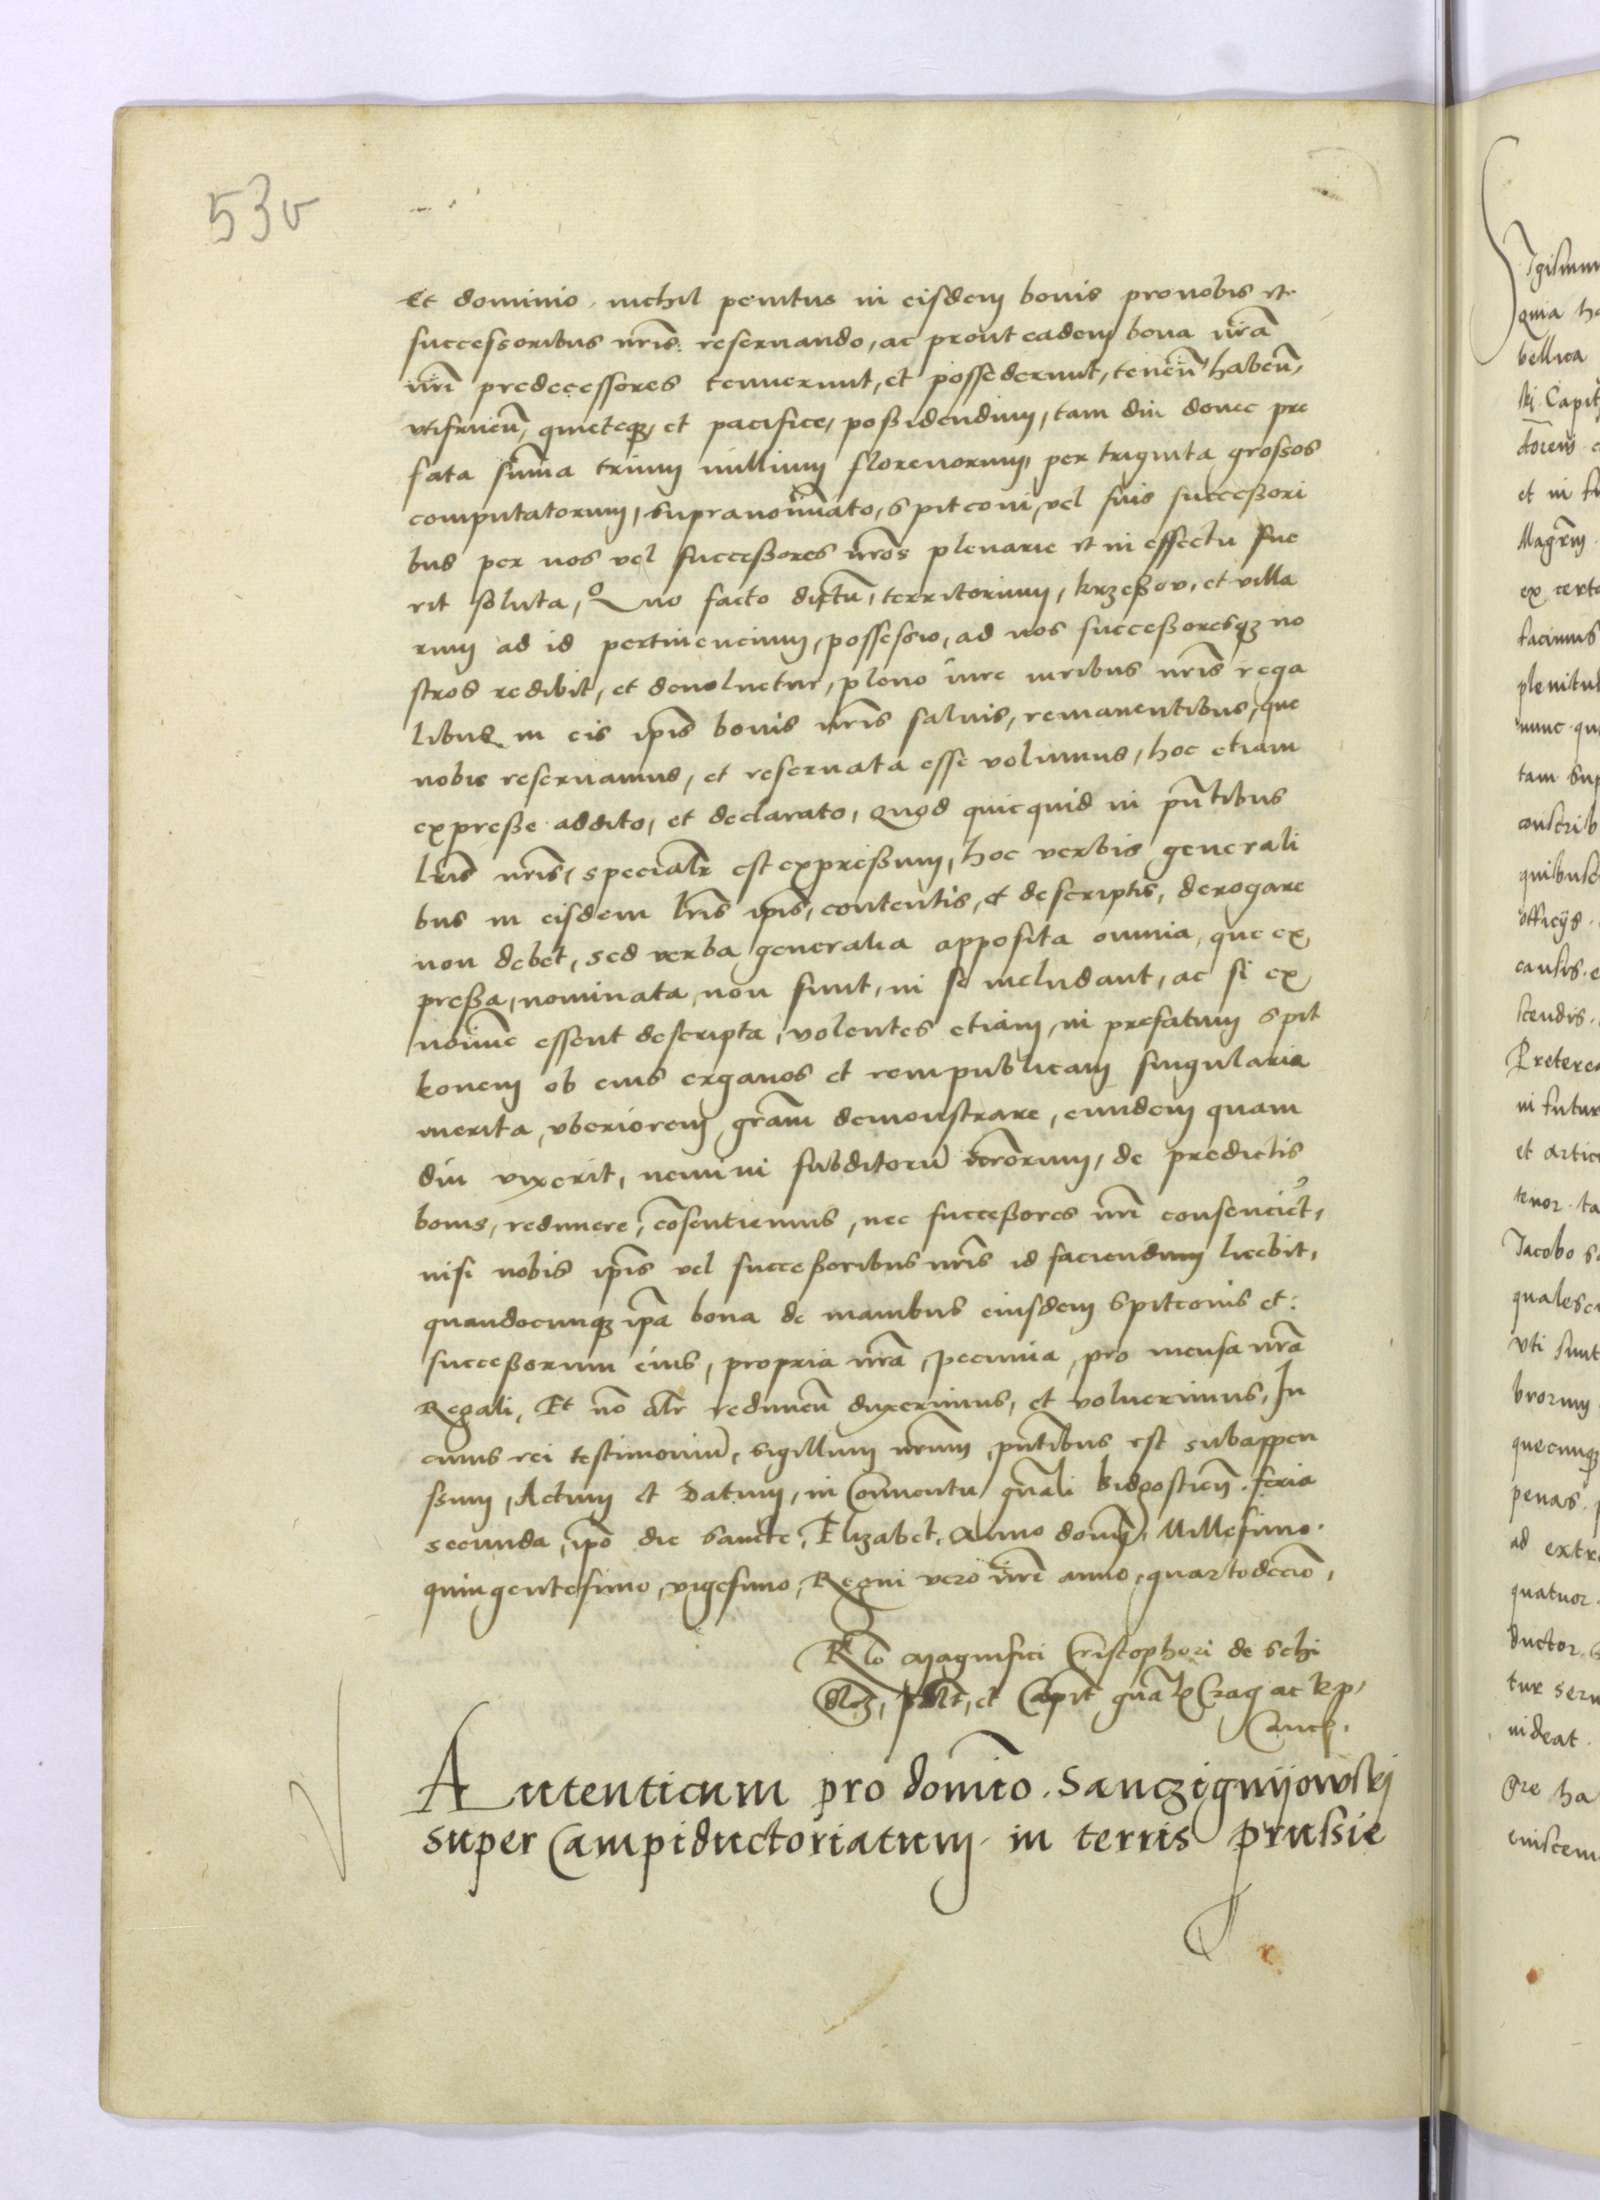 53v
Et dominio, nichil penitus in eisdem bonis pro nobis et
successoribus nr̃is reseruando, ac prout eadem bona nr̃a
nr̃i predecessores tenuerunt, et possederunt, teneñ habeñ,
vtifrueñ, quieteqꝫ, et pacifice, possidendum, tam diu donec pre
fata sum̃a trium millium florenorum, per triginta grossos
computatorum, supranoĩato, Spitconi, vel suis successori
bus per nos vel successores nr̃os plenarie et in effectu fue
rit soluta, Quo facto dictũ, territorium, Krzessov, et villa
rum ad id pertinencium, possessio, ad nos successoresqꝫ no
stros redibit, et deuoluetur, pleno iure iuribus nr̃is rega
libus, in eis ip̃is bonis nr̃is saluis, remanentibus, que
nobis reseruamus, et reseruata esse volumus, hoc etiam
expresse addito, et declarato, quod quicquid in pñtibus
lr̃is nr̃is, specialr̃ est expressum, hoc verbis generali
bus in eisdem lr̃is ip̃is, contentis, et descriptis, derogare
non debet, sed verba generalia apposita omnia, que ex
pressa, nominata, non sunt, in se includant, ac si ex
noĩne essent descripta, volentes etiam, in prefatum Spit
konem ob eius erga nos et rempublicam singularia
merita, vberiorem gr̃am demonstrare, eundem quam
diu vixerit, nemini subditorũ nr̃orum, de predictis
bonis, redimere, cõsentiemus, nec successores nr̃i consencient,
nisi nobis ip̃is vel successoribus nr̃is id faciendum licebit,
quandocunqꝫ ip̃a bona de manibus eiusdem Spitconis et
successorum eius, propria nr̃a, pecunia, pro mensa nr̃a
Regali, Et nõ alr̃ redimeñ duxerimus, et voluerimus, In
cuius rei testimoniũ, sigillum nr̃um, pñtibus est subappen
sum, Actum et Datum, in Conuentu gñali Bidgostieñ. feria
secunda, ip̃o die Sancte, Elizabet. Anno domĩj. Millesimo.
quingentesimo, vigesimo, Regni vero nr̃i anno, quartodecĩo,
Rlo Magnifici Cristophori de Schi
dlo, , et Capit gñal Crac ac Rp,
Canc.
Autenticum pro domĩo. Sanczignijowskj
super Campiductoriatum in terris Prusie
quia
bellica
et in
ex certa
facimus
tam
officijs
Preterea
in futur
tenor
Jacobo
vti sunt
penas
quatuor
nideat